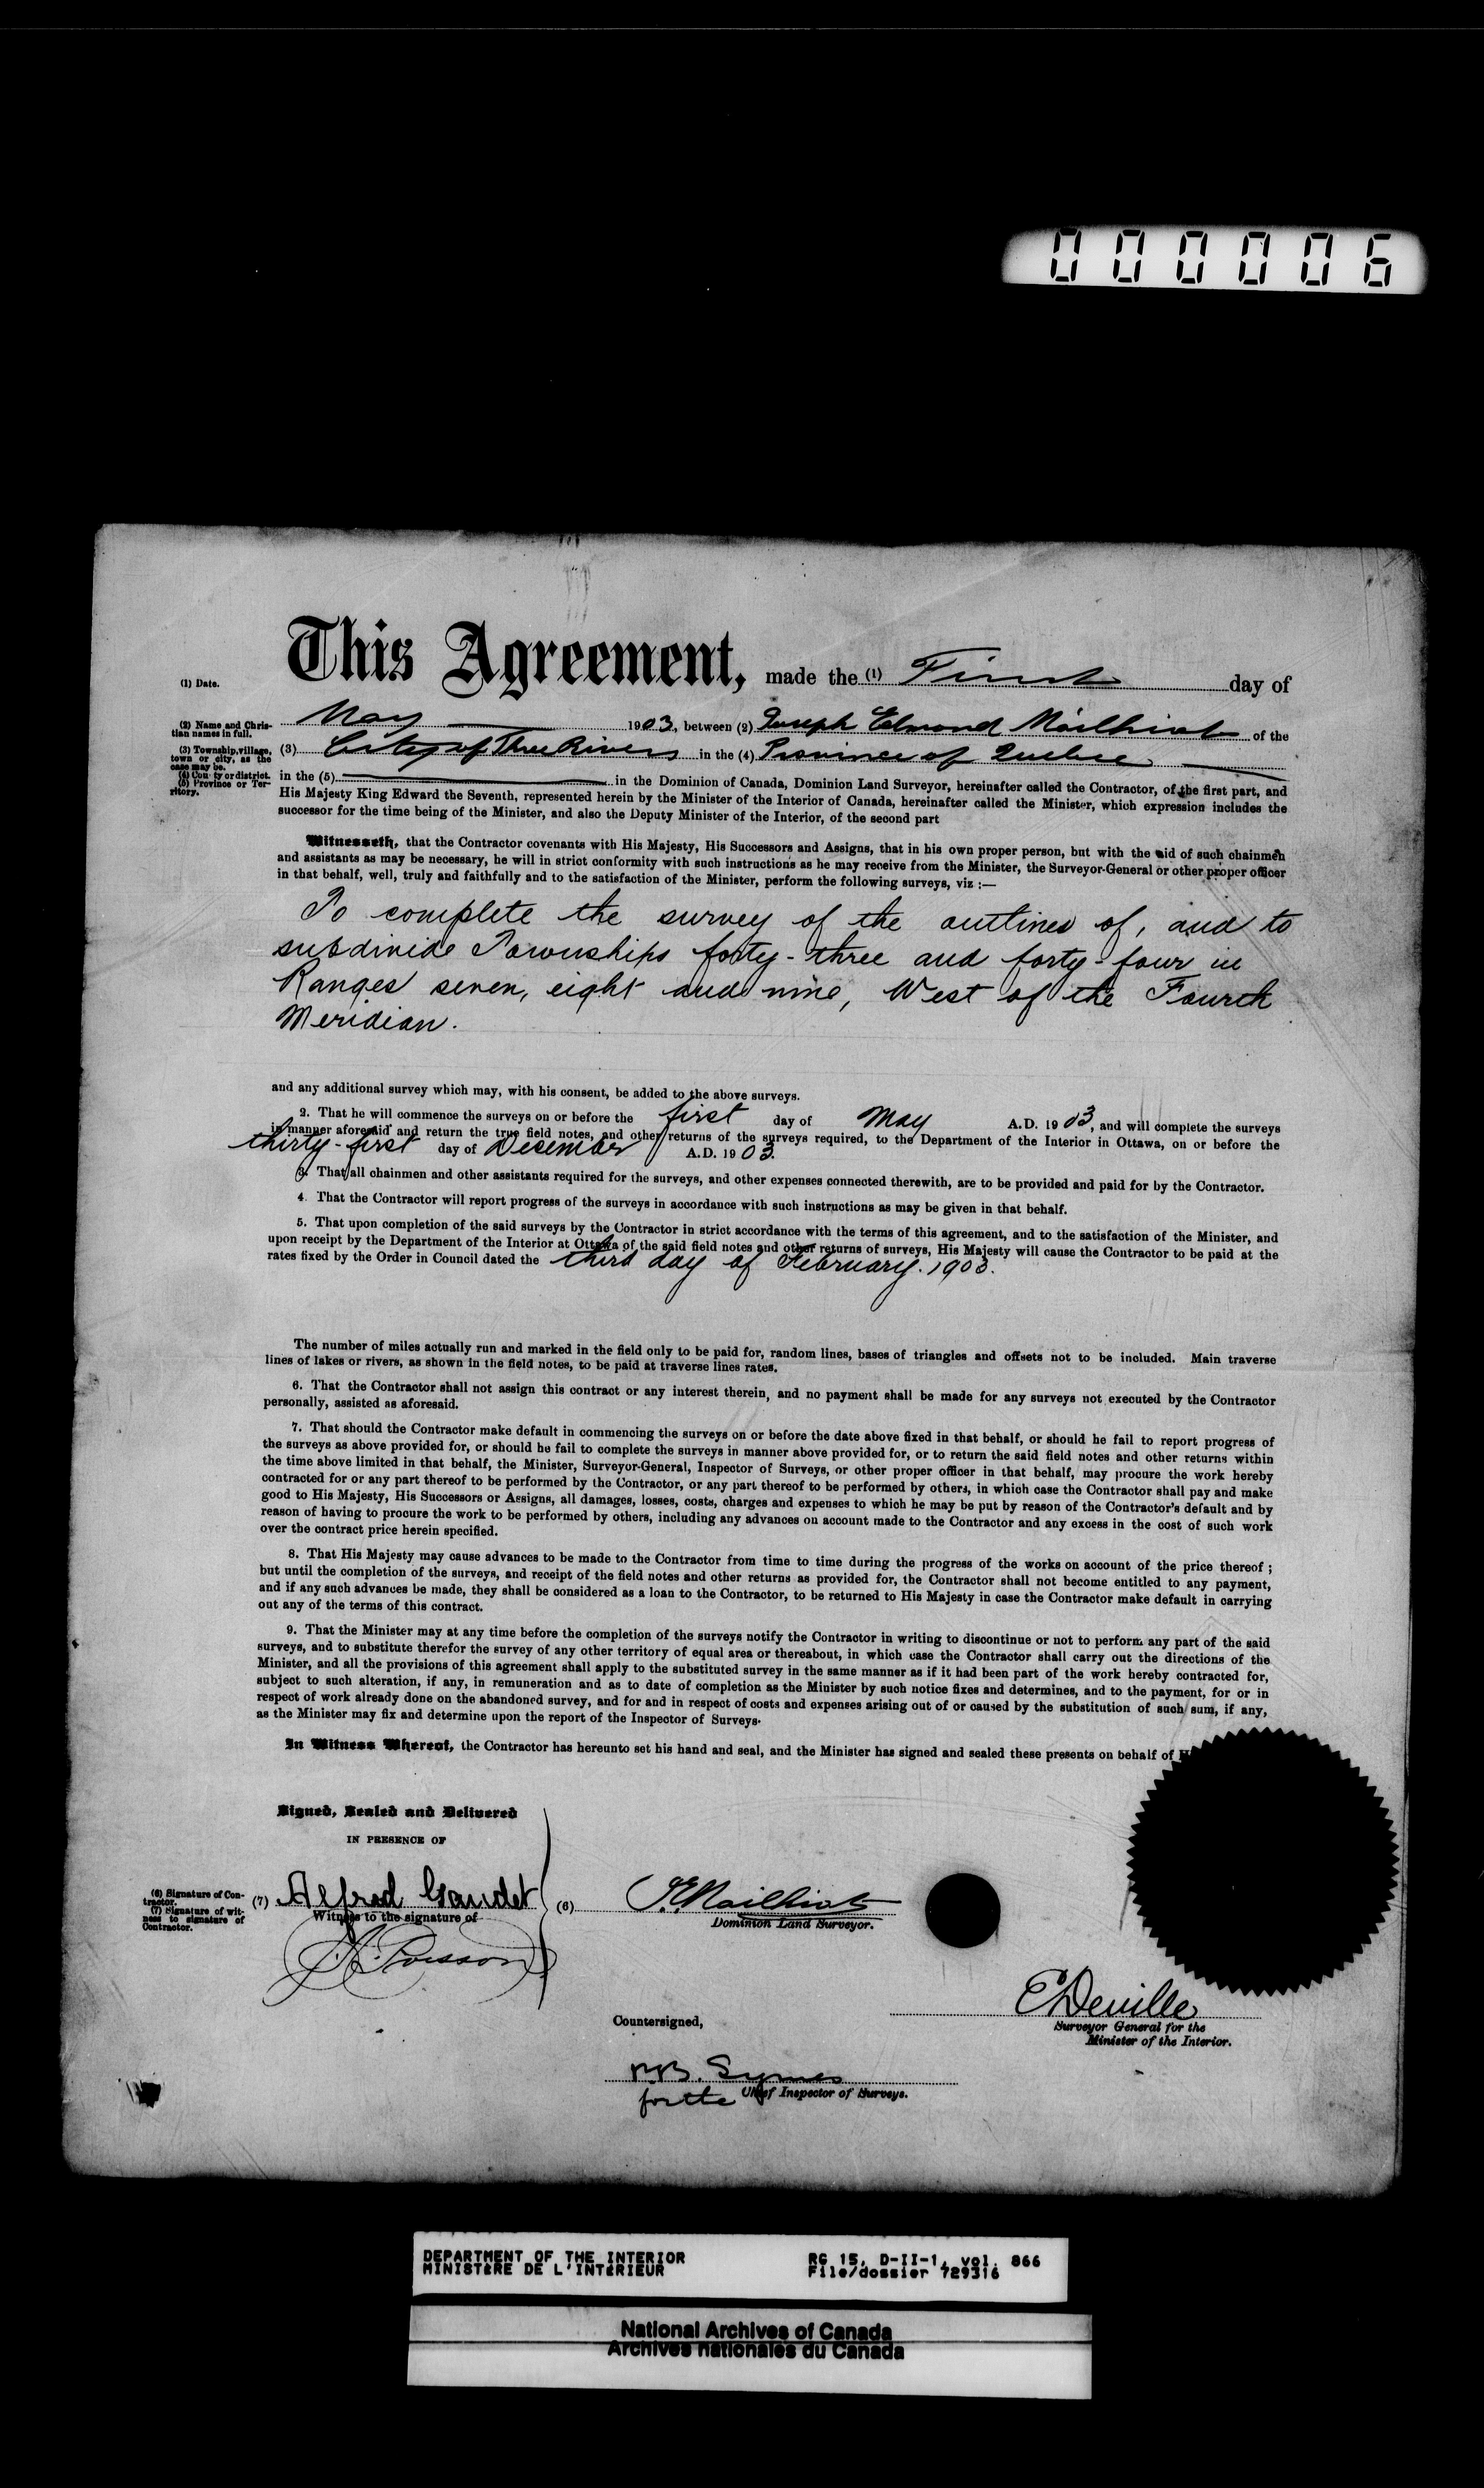 000006
This Agreement, made the (1) First day of
(1) Date.
May 1903, between (2) Joseph Edmond Mailhiot of the
(2) Name and Christian names in full.
(3) City of Three Rivers in the (4) Province of Quebec
(3) Township, village, town or city, as the case may be.
(4) County or district.
(5) Province or Territory.
in the (5) in the Dominion of Canada, Dominion Land Surveyor, hereinafter called the Contractor, of the first part, and
His Majesty King Edward the Seventh, represented herein by the Minister of the Interior of Canada, hereinafter called the Minister, which expression includes the
successor for the time being of the Minister, and also the Deputy Minister of the Interior, of the second part
Witnesseth, that the Contractor covenants with His Majesty, His Successors and Assigns, that in his own proper person, but with the aid of such chainmen
and assistants as may be necessary, he will in strict conformity with such instructions as he may receive from the Minister, the Surveyor-General or other proper officer
in that behalf, well, truly and faithfully and to the satisfaction of the Minister, perform the following surveys, viz :—
To complete the survey of the outlines of, and to
subdivide Townships forty-three and forty-four in
Ranges seven, eight and nine, West of the Fourth
Meridian.
and any additional survey which may, with his consent, be added to the above surveys.
2. That he will commence the surveys on or before the first day of May A.D. 1903, and will complete the surveys
in manner aforesaid and return the true field notes, and other returns of the surveys required, to the Department of the Interior in Ottawa, on or before the
thirty-first day of December A.D. 1903.
3. That all chainmen and other assistants required for the surveys, and other expenses connected therewith, are to be provided and paid for by the Contractor.
4. That the Contractor will report progress of the surveys in accordance with such instructions as may be given in that behalf.
5. That upon completion of the said surveys by the Contractor in strict accordance with the terms of this agreement, and to the satisfaction of the Minister, and
upon receipt by the Department of the Interior at Ottawa of the said field notes and other returns of surveys, His Majesty will cause the Contractor to be paid at the
rates fixed by the Order in Council dated the third day of February. 1903.
The number of miles actually run and marked in the field only to be paid for, random lines, bases of triangles and offsets not to be included. Main traverse
lines of lakes or rivers, as shown in the field notes, to be paid at traverse lines rates.
6. That the Contractor shall not assign this contract or any interest therein, and no payment shall be made for any surveys not executed by the Contractor
personally, assisted as aforesaid.
7. That should the Contractor make default in commencing the surveys on or before the date above fixed in that behalf, or should he fail to report progress of
the surveys as above provided for, or should he fail to complete the surveys in manner above provided for, or to return the said field notes and other returns within
the time above limited in that behalf, the Minister, Surveyor-General, Inspector of Surveys, or other proper officer in that behalf, may procure the work hereby
contracted for or any part thereof to be performed by the Contractor, or any part thereof to be performed by others, in which case the Contractor shall pay and make
good to His Majesty, His Successors or Assigns, all damages, losses, costs, charges and expenses to which he may be put by reason of the Contractor's default and by
reason of having to procure the work to be performed by others, including any advances on account made to the Contractor and any excess in the cost of such work
over the contract price herein specified.
8. That His Majesty may cause advances to be made to the Contractor from time to time during the progress of the works on account of the price thereof ;
but until the completion of the surveys, and receipt of the field notes and other returns as provided for, the Contractor shall not become entitled to any payment,
and if any such advances be made, they shall be considered as a loan to the Contractor, to be returned to His Majesty in case the Contractor make default in carrying
out any of the terms of this contract.
9. That the Minister may at any time before the completion of the surveys notify the Contractor in writing to discontinue or not to perform any part of the said
surveys, and to substitute therefor the survey of any other territory of equal area or thereabout, in which case the Contractor shall carry out the directions of the
Minister, and all the provisions of this agreement shall apply to the substituted survey in the same manner as if it had been part of the work hereby contracted for,
subject to such alteration, if any, in remuneration and as to date of completion as the Minister by such notice fixes and determines, and to the payment, for or in
respect of work already done on the abandoned survey, and for and in respect of costs and expenses arising out of or caused by the substitution of such sum, if any,
as the Minister may fix and determine upon the report of the Inspector of Surveys.
In Witness Whereof, the Contractor has hereunto set his hand and seal, and the Minister has signed and sealed these presents on behalf of
Signed, Sealed and Delivered
IN PRESENCE OF
(6) Signature of Contractor.
(7) Signature of witness to signature of Contractor.
(7) Alfred Gaudet (6) J.E. Mailhiot
Witness to the signature of Dominion Land Surveyor.
Poisson
E. Deville
Surveyor General for the
Minister of the Interior.
Countersigned,
P.B. Symes
for the Chief Inspector of Surveys.
DEPARTMENT OF THE INTERIOR RG 15, D-II-1, vol. 866
MINISTÈRE DE L'INTÉRIEUR File/dossier 729316
National Archives of Canada
Archives nationales du Canada